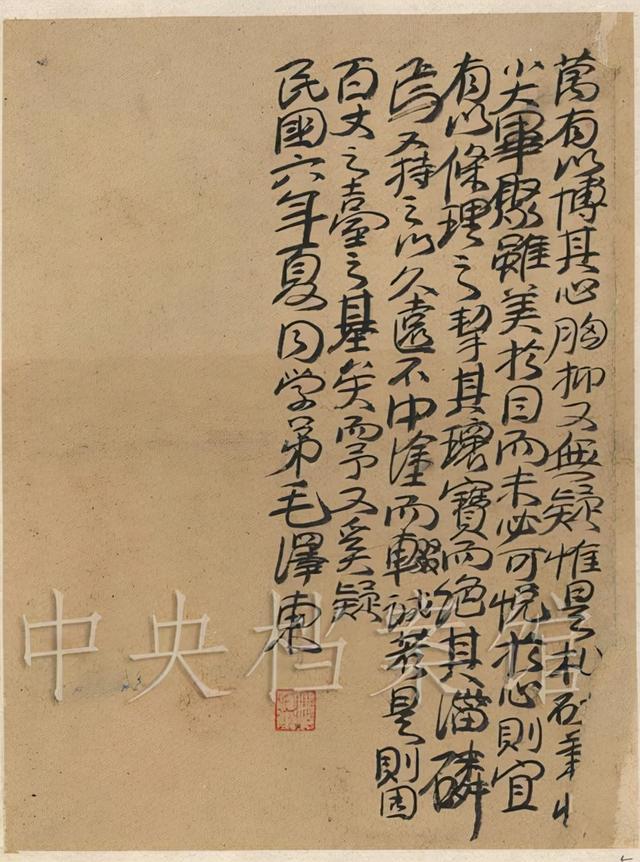 萬有以博其心胸抑又無疑惟是札
小大畢聚雖美於目而未必可悅於心則宜
有以條理之挈其瓌寶而絕其淄磷
焉又持之以久遠不中塗而輟誠若是則固
百丈之臺之基矣而予又奚疑
民國六年夏同学弟毛澤東
中央档案馆